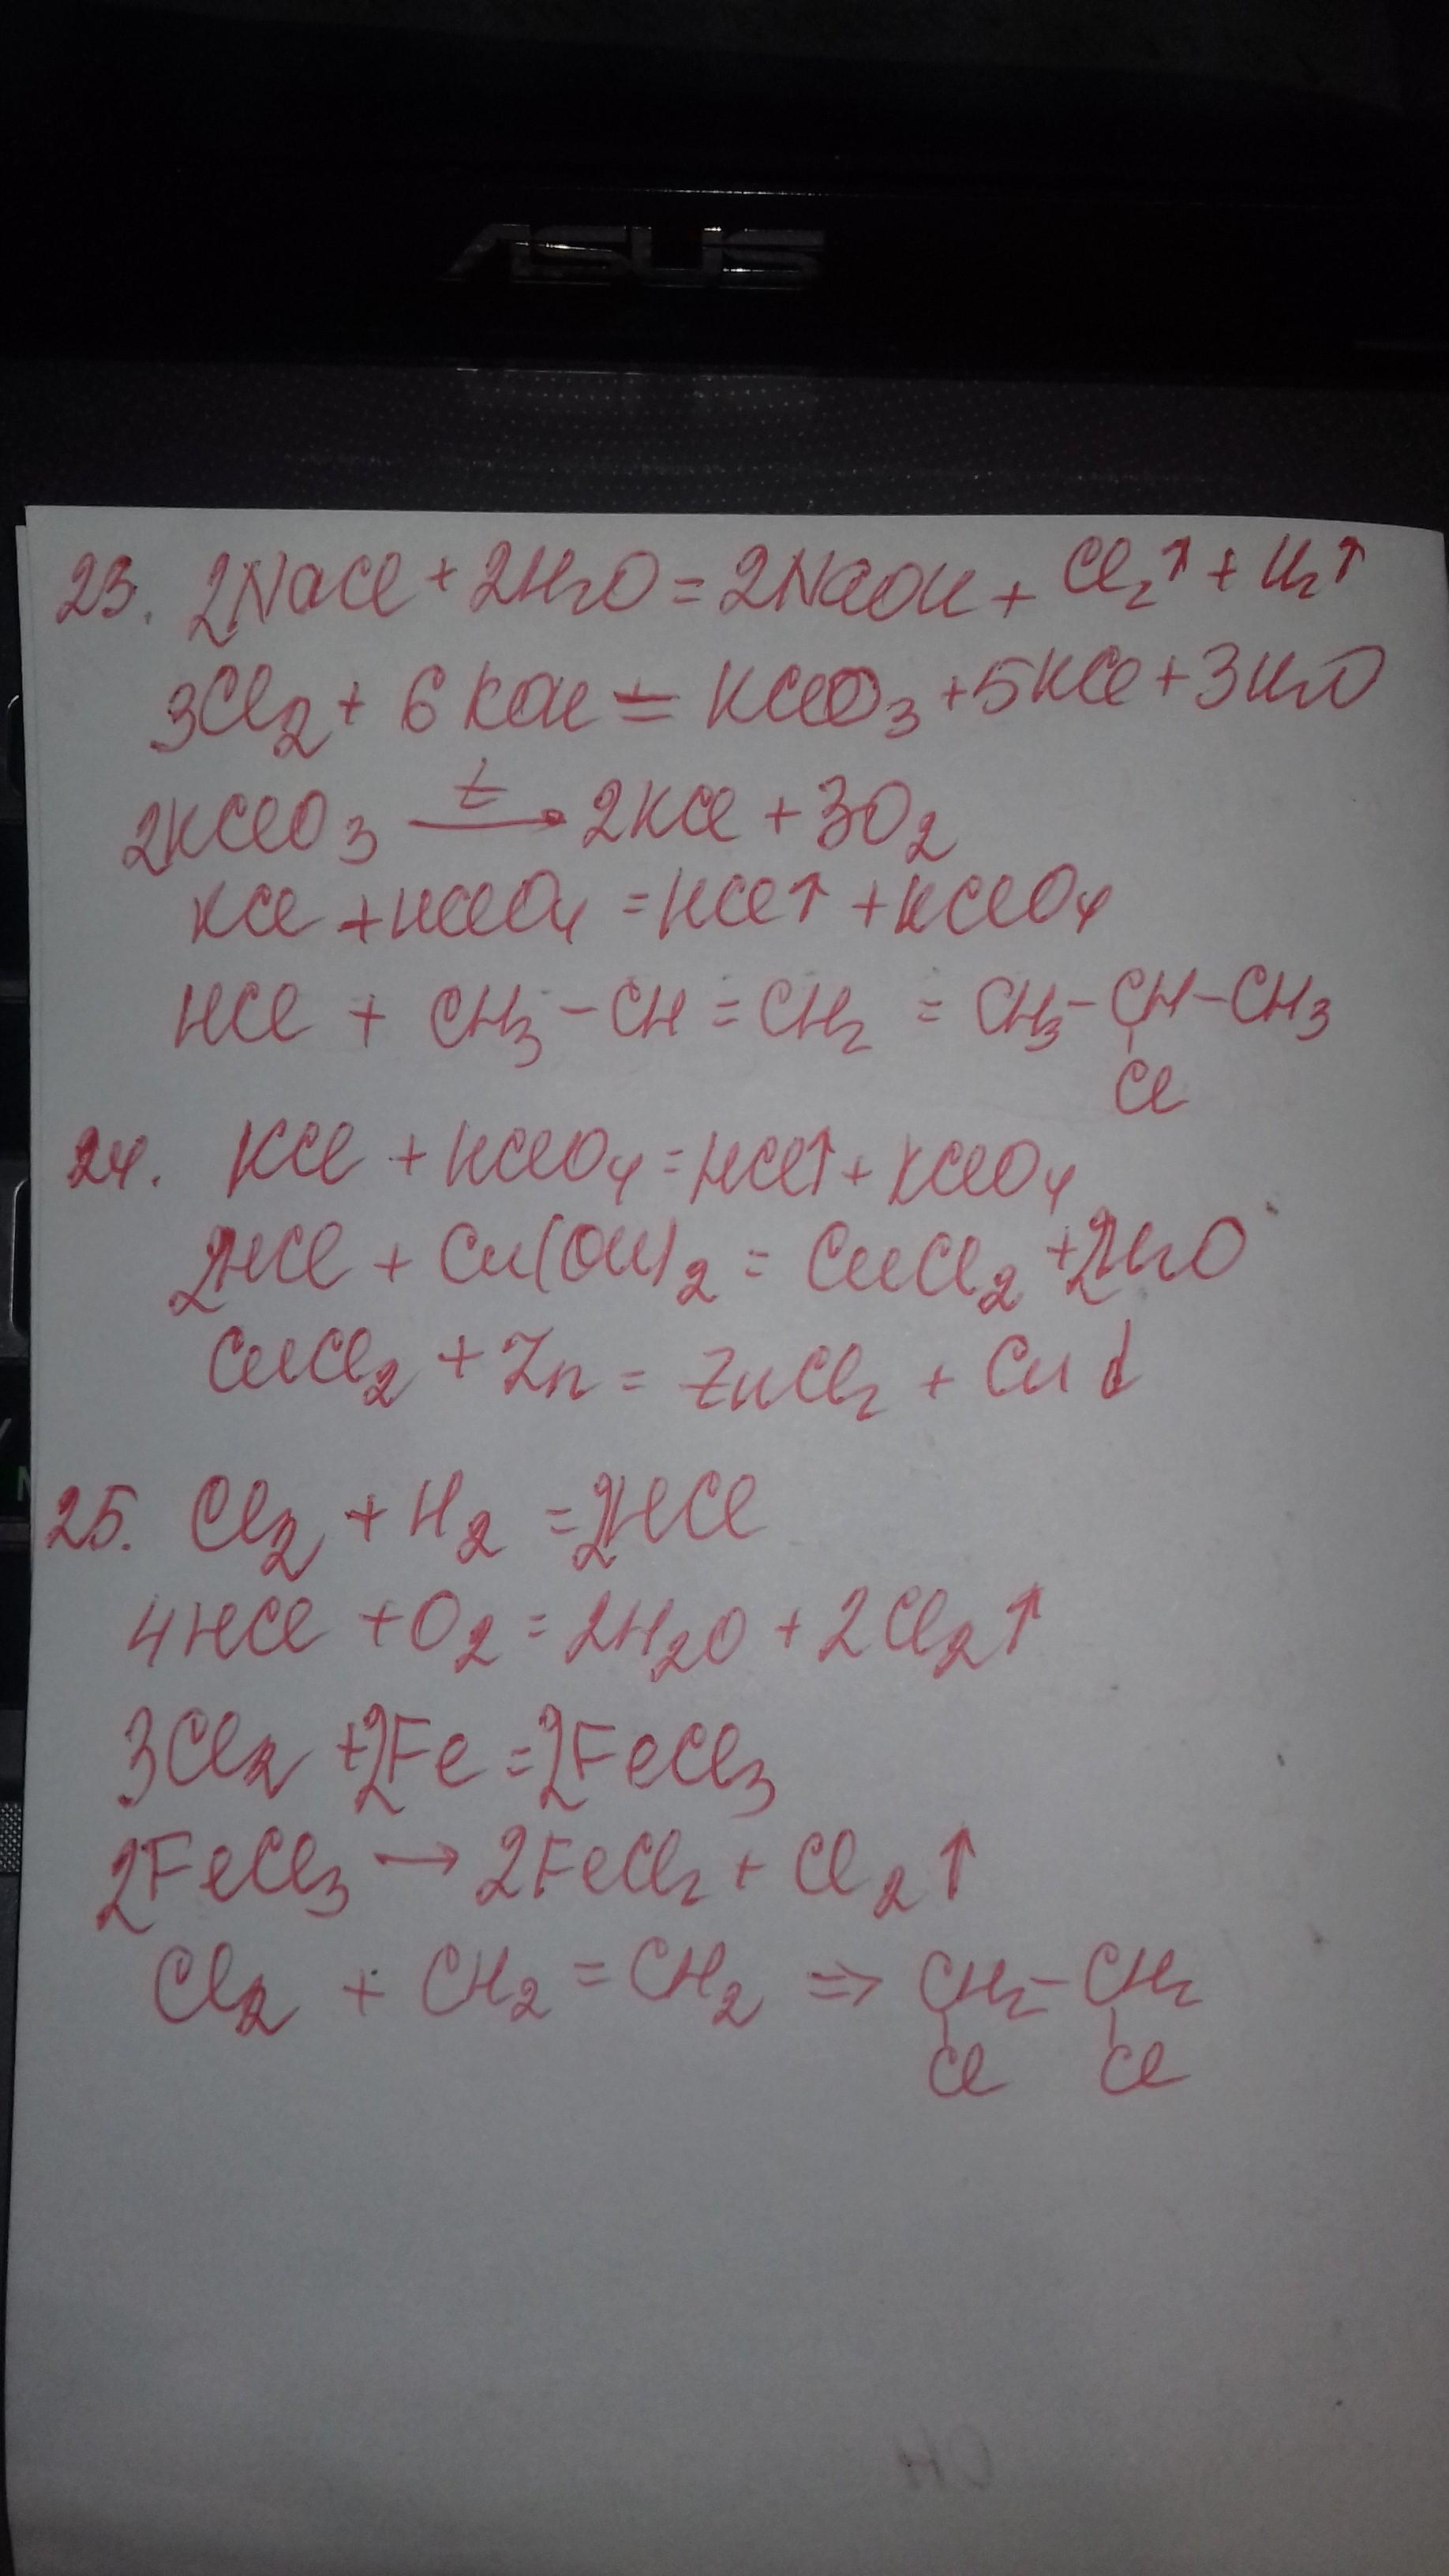 ASUS
23. 2NaCl + 2H2O = 2NaOH + Cl2↑ + H2↑
3Cl2 + 6KOH = KClO3 + 5KCl + 3H2O
2KClO3 t→ 2KCl + 3O2
KCl + HClO4 = HCl↑ + KClO4
HCl + CH3 - CH = CH2 = CH3 - CH - CH3
Cl
24. KCl + HClO4 = HCl↑ + KClO4
2HCl + Cu(OH)2 = CuCl2 + 2H2O
CuCl2 + Zn = ZnCl2 + Cu↓
25. Cl2 + H2 = 2HCl
4HCl + O2 = 2H2O + 2Cl2↑
3Cl2 + 2Fe = 2FeCl3
2FeCl3 → 2FeCl2 + Cl2↑
Cl2 + CH2 = CH2 => CH2 - CH2
Cl Cl
CH